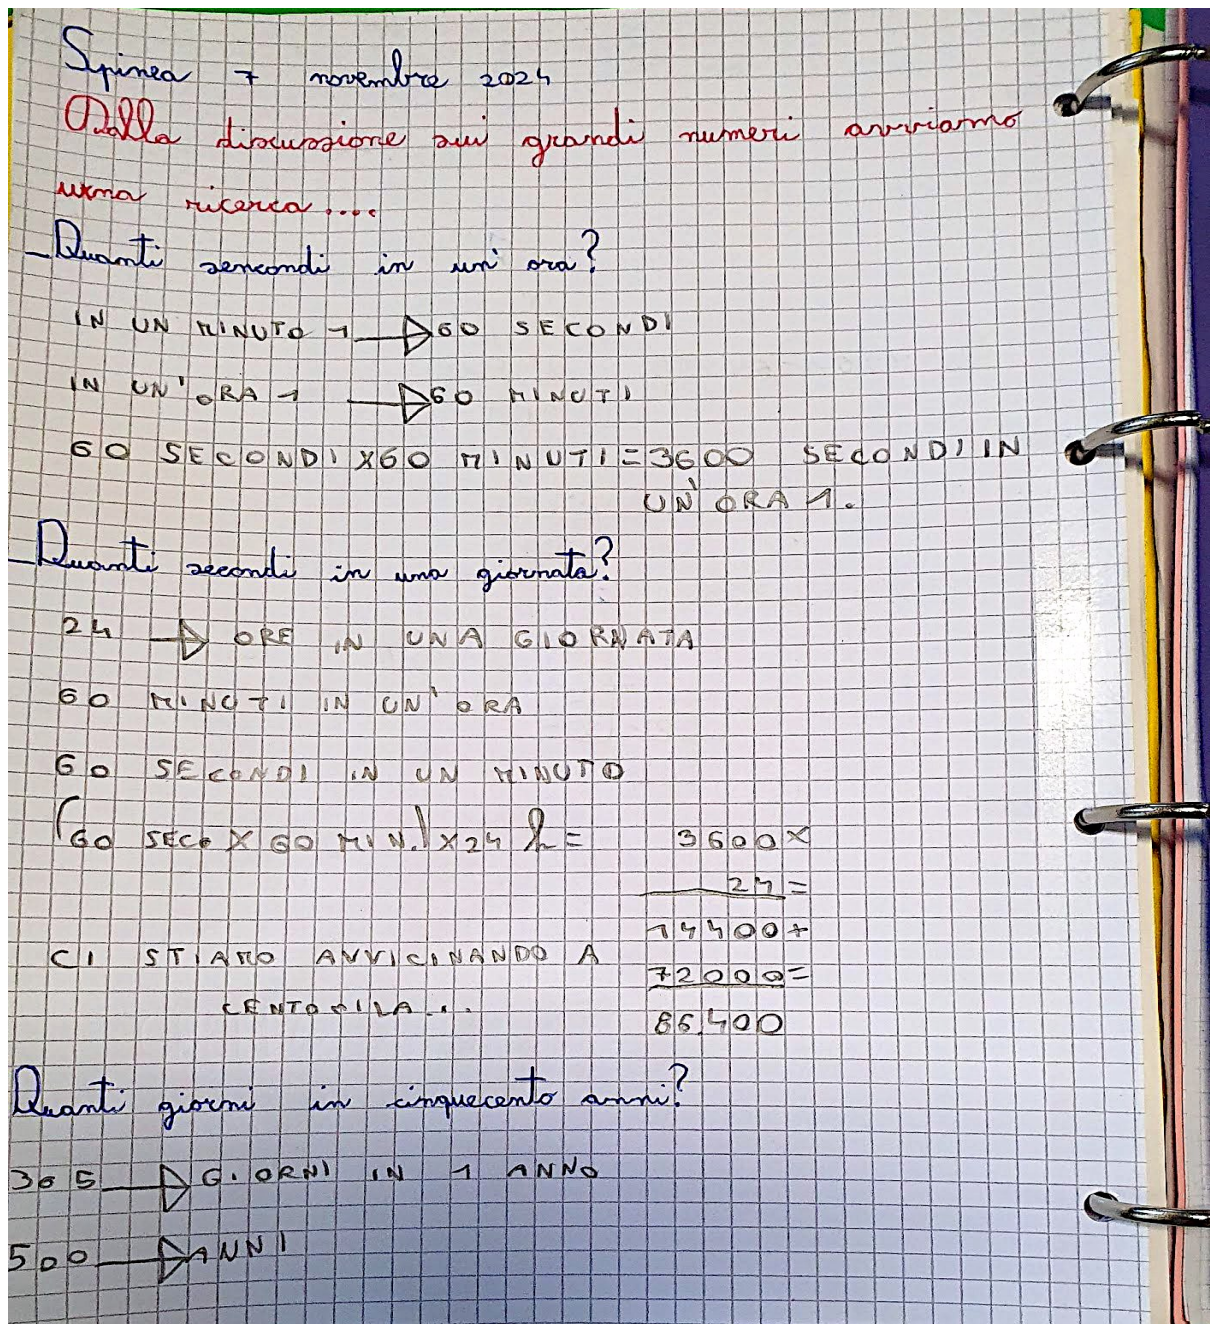 Spinea 7 novembre 2024
Dalla discussione sui grandi numeri avviamo
una ricerca....
- Quanti sencondi in un' ora?
IN UN MINUTO 1 → 60 SECONDI
IN UN' ORA 1 → 60 MINUTI
60 SECONDI X60 MINUTI = 3600 SECONDI IN
UN' ORA 1.
- Quanti secondi in una giornata?
24 → ORE IN UNA GIORNATA
60 MINUTI IN UN' ORA
60 SECONDI IN UN MINUTO
(60 SEC. X 60 MIN.) X24 h =
3600 X
24 =
14400+
72000=
86.400
CI STIAMO AVVICINANDO A
CENTOMILA...
Quanti giorni in cinquecento anni?
365 → GIORNI IN 1 ANNO
500 → ANNI